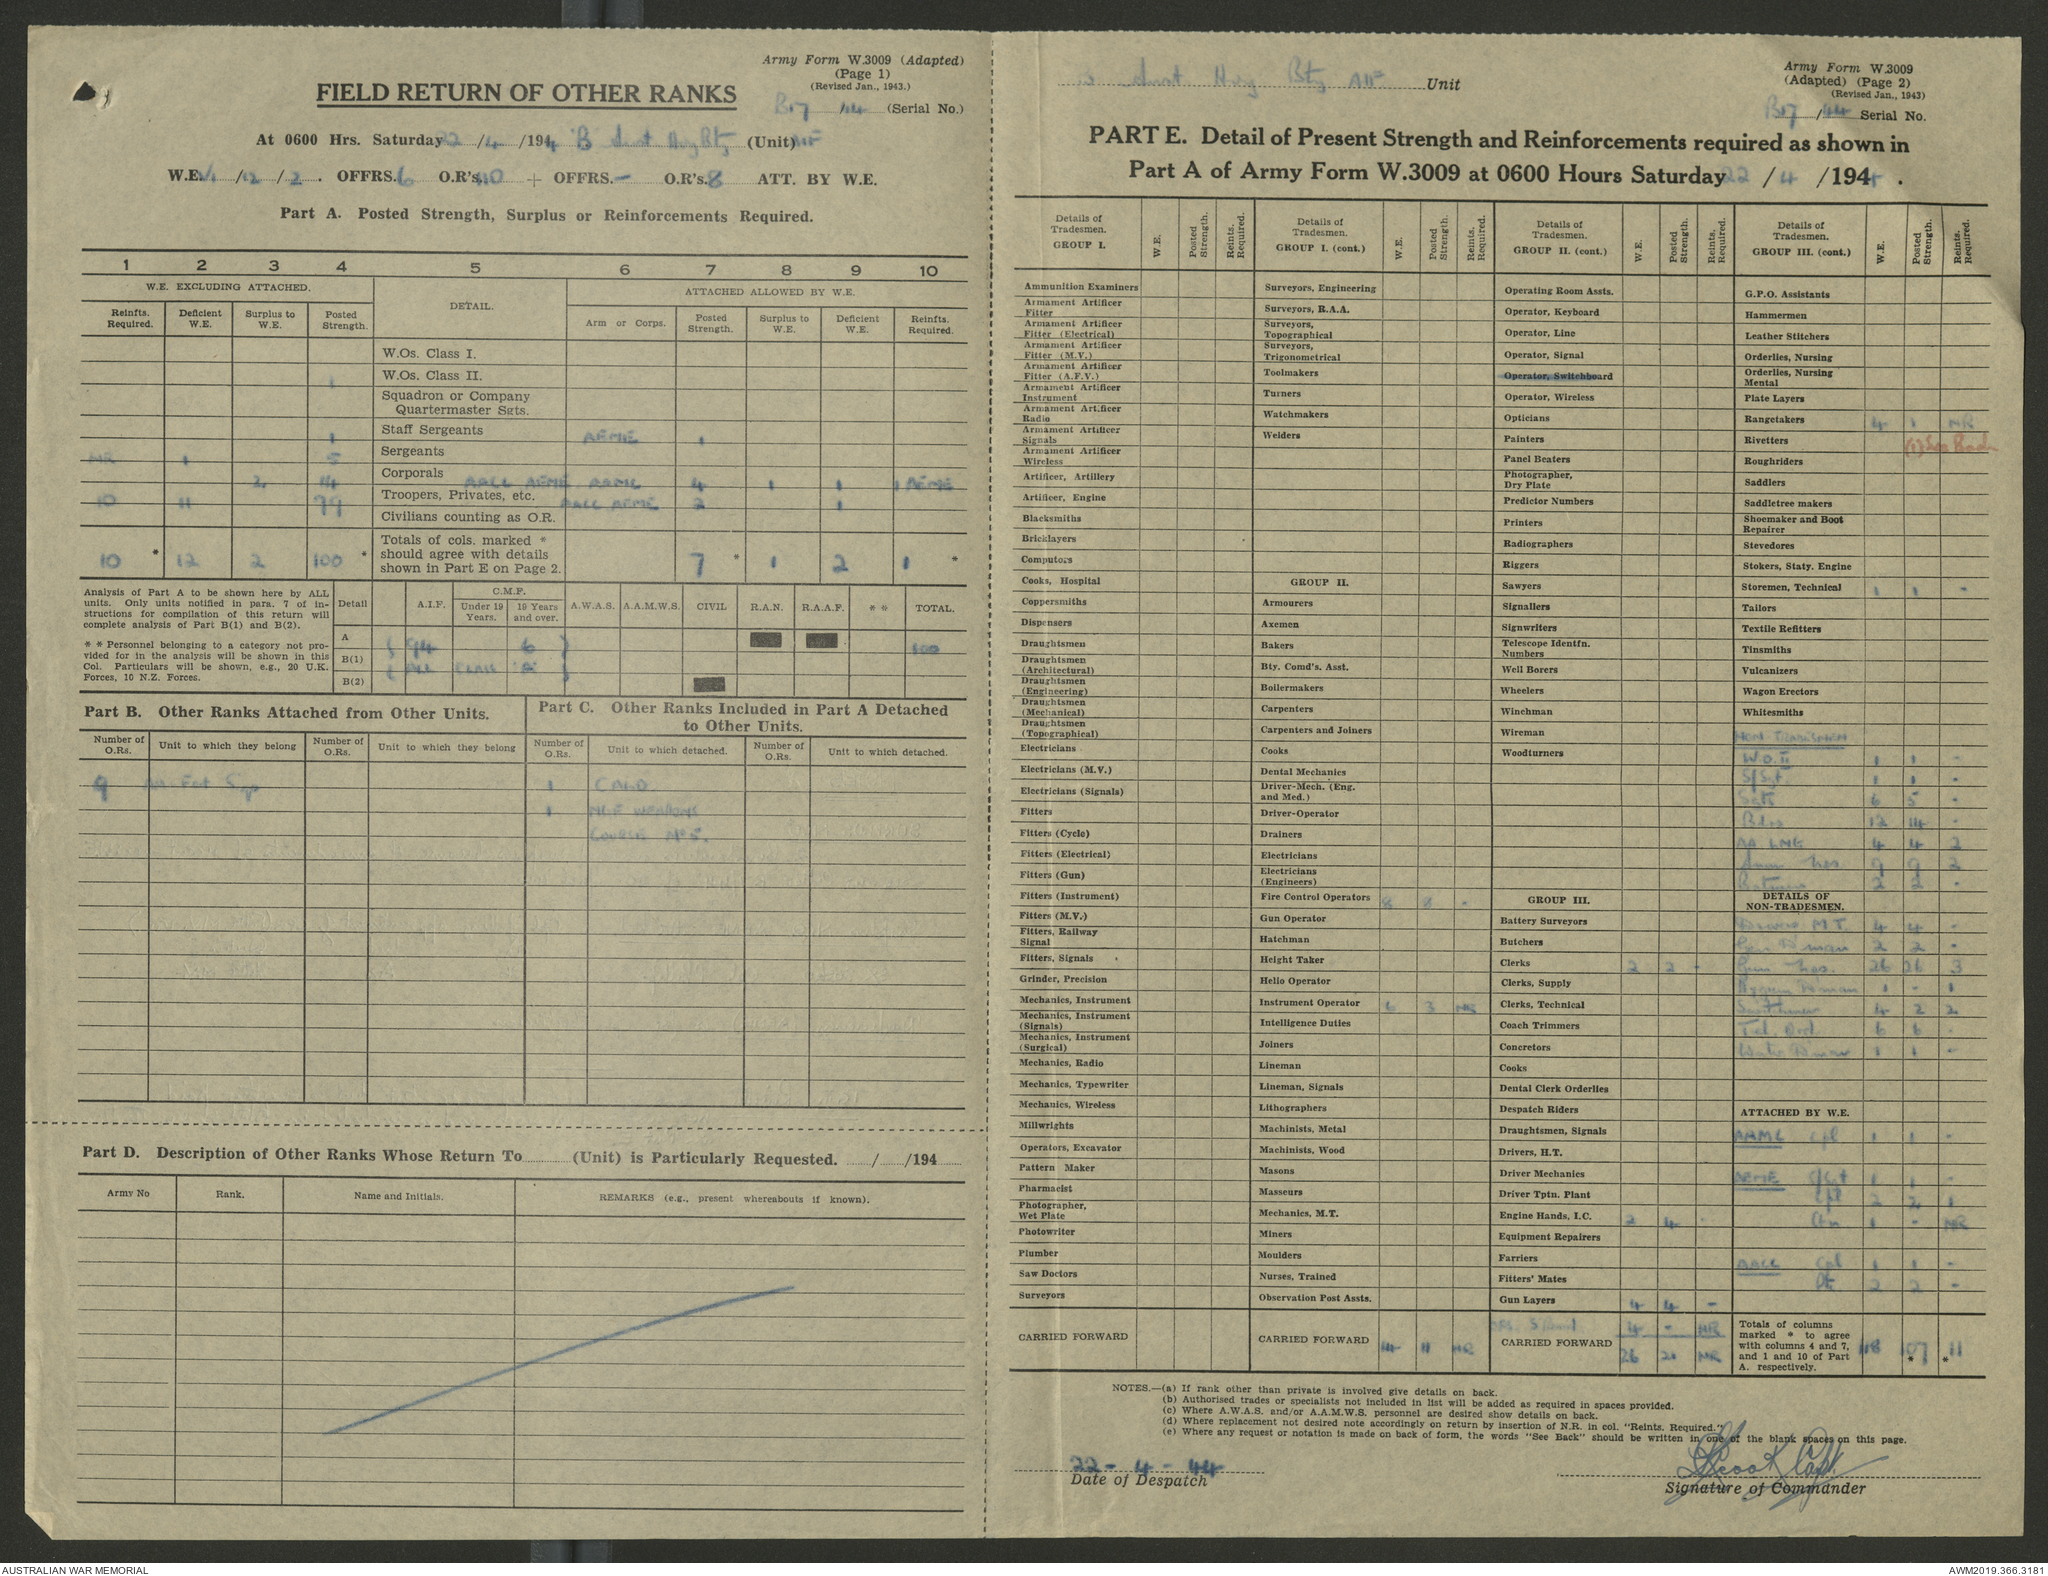 Army Form W.3009 (Adapted)
(Page 1)
(Revised Jan., 1943.)
FIELD RETURN OF OTHER RANKS
B17/44 (Serial No.)
At 0600 Hrs. Saturday 22/4/1944 'B' Bty (Unit) AIF
W.E. /12/2. OFFRS. 6 O.R's. 110 + OFFRS. – O.R's. 8 ATT. BY W.E.
Part A. Posted Strength, Surplus or Reinforcements Required.
1 2 3 4 5 6 7 8 9 10
W.E. EXCLUDING ATTACHED. DETAIL. ATTACHED ALLOWED BY W.E.
Reinfts. Required. Deficient W.E. Surplus to W.E. Posted Strength. Arm or Corps. Posted Strength. Surplus to W.E. Deficient W.E. Reinfts. Required.
W.Os. Class I.
1 W.Os. Class II.
Squadron or Company Quartermaster Sgts.
1 Staff Sergeants AEME 1
NR 1 5 Sergeants
2 14 Corporals AACC AEME AAMC 4 1 1 1 AEME
10 11 79 Troopers, Privates, etc. AACC AEME 2 1
Civilians counting as O.R.
10 * 12 2 100 * Totals of cols. marked * should agree with details shown in Part E on Page 2. 7 * 1 2 1 *
Analysis of Part A to be shown here by ALL units. Only units notified in para. 7 of instructions for compilation of this return will complete analysis of Part B(1) and B(2).
* * Personnel belonging to a category not provided for in the analysis will be shown in this Col. Particulars will be shown, e.g., 20 U.K. Forces, 10 N.Z. Forces.
Detail A.I.F. C.M.F. Under 19 Years. 19 Years and over. A.W.A.S. A.A.M.W.S. CIVIL R.A.N. R.A.A.F. * * TOTAL.
A 94 6 100
B(1) ALL CLASS 'A'
B(2)
Part B. Other Ranks Attached from Other Units.
Part C. Other Ranks Included in Part A Detached to Other Units.
Number of O.Rs. Unit to which they belong Number of O.Rs. Unit to which they belong Number of O.Rs. Unit to which detached. Number of O.Rs. Unit to which detached.
9 1 CALD
1 WEAPONS
COURSE No 5.
Part D. Description of Other Ranks Whose Return To (Unit) is Particularly Requested. / /194
Army No Rank. Name and Initials. REMARKS (e.g., present whereabouts if known).
Bty AIF Unit
Army Form W.3009
(Adapted) (Page 2)
(Revised Jan., 1943)
B17/44 Serial No.
PART E. Detail of Present Strength and Reinforcements required as shown in
Part A of Army Form W.3009 at 0600 Hours Saturday 22/4/194 .
Details of Tradesmen. GROUP I. W.E. Posted Strength. Reints. Required.
Ammunition Examiners
Armament Artificer Fitter
Armament Artificer Fitter (Electrical)
Armament Artificer Fitter (M.V.)
Armament Artificer Fitter (A.F.V.)
Armament Artificer Instrument
Armament Artificer Radio
Armament Artificer Signals
Armament Artificer Wireless
Artificer, Artillery
Artificer, Engine
Blacksmiths
Bricklayers
Computors
Cooks, Hospital
Coppersmiths
Dispensers
Draughtsmen
Draughtsmen (Architectural)
Draughtsmen (Engineering)
Draughtsmen (Mechanical)
Draughtsmen (Topographical)
Electricians
Electricians (M.V.)
Electricians (Signals)
Fitters
Fitters (Cycle)
Fitters (Electrical)
Fitters (Gun)
Fitters (Instrument)
Fitters (M.V.)
Fitters, Railway Signal
Fitters, Signals
Grinder, Precision
Mechanics, Instrument
Mechanics, Instrument (Signals)
Mechanics, Instrument (Surgical)
Mechanics, Radio
Mechanics, Typewriter
Mechanics, Wireless
Millwrights
Operators, Excavator
Pattern Maker
Pharmacist
Photographer, Wet Plate
Photowriter
Plumber
Saw Doctors
Surveyors
CARRIED FORWARD
Details of Tradesmen. GROUP I. (cont.) W.E. Posted Strength. Reints. Required.
Surveyors, Engineering
Surveyors, R.A.A.
Surveyors, Topographical
Surveyors, Trigonometrical
Toolmakers
Turners
Watchmakers
Welders
GROUP II.
Armourers
Axemen
Bakers
Bty. Comd's. Asst.
Boilermakers
Carpenters
Carpenters and Joiners
Cooks
Dental Mechanics
Driver-Mech. (Eng. and Med.)
Driver-Operator
Drainers
Electricians
Electricians (Engineers)
Fire Control Operators 8 8 -
Gun Operator
Hatchman
Height Taker
Helio Operator
Instrument Operator 6 3 NR
Intelligence Duties
Joiners
Lineman
Lineman, Signals
Lithographers
Machinists, Metal
Machinists, Wood
Masons
Masseurs
Mechanics, M.T.
Miners
Moulders
Nurses, Trained
Observation Post Assts.
CARRIED FORWARD 14 11 NR
Details of Tradesmen. GROUP II. (cont.) W.E. Posted Strength. Reints. Required.
Operating Room Assts.
Operator, Keyboard
Operator, Line
Operator, Signal
Operator, Switchboard
Operator, Wireless
Opticians
Painters
Panel Beaters
Photographer, Dry Plate
Predictor Numbers
Printers
Radiographers
Riggers
Sawyers
Signallers
Signwriters
Telescope Identfn. Numbers
Well Borers
Wheelers
Winchman
Wireman
Woodturners
GROUP III.
Battery Surveyors
Butchers
Clerks 2 2 -
Clerks, Supply
Clerks, Technical
Coach Trimmers
Concretors
Cooks
Dental Clerk Orderlies
Despatch Riders
Draughtsmen, Signals
Drivers, H.T.
Driver Mechanics
Driver Tptn. Plant
Engine Hands, I.C. 2 4 -
Equipment Repairers
Farriers
Fitters' Mates
Gun Layers 4 4 -
4 - NR
CARRIED FORWARD 26 21 NR
Details of Tradesmen. GROUP III. (cont.) W.E. Posted Strength. Reints. Required.
G.P.O. Assistants
Hammermen
Leather Stitchers
Orderlies, Nursing
Orderlies, Nursing Mental
Plate Layers
Rangetakers 4 1 NR
Rivetters (1) See Back
Roughriders
Saddlers
Saddletree makers
Shoemaker and Boot Repairer
Stevedores
Stokers, Staty. Engine
Storemen, Technical 1 1 -
Tailors
Textile Refitters
Tinsmiths
Vulcanizers
Wagon Erectors
Whitesmiths
NON-TRADESMEN
W.O. II 1 1 -
S/Sgt. 1 1 -
Sgts 6 5 -
Bdrs 12 14 -
AA LMG 4 4 2
Amm Nos 9 9 2
Batmen 2 2 -
DETAILS OF NON-TRADESMEN.
Drivers M.T. 4 4 -
2 2 -
Gun Nos. 26 26 3
Hygiene Dman 1 - 1
4 2 2
Tel. Ord. 6 6 -
Water Dman 1 1 -
ATTACHED BY W.E.
AAMC Cpl 1 1 -
AEME S/Sgt 1 1 -
Cpl 2 2 1
1 - NR
AACC Cpl 1 1 -
Pte 2 2 -
Totals of columns marked * to agree with columns 4 and 7, and 1 and 10 of Part A. respectively. 118 107 * * 11
NOTES.—(a) If rank other than private is involved give details on back.
(b) Authorised trades or specialists not included in list will be added as required in spaces provided.
(c) Where A.W.A.S. and/or A.A.M.W.S. personnel are desired show details on back.
(d) Where replacement not desired note accordingly on return by insertion of N.R. in col. "Reints. Required."
(e) Where any request or notation is made on back of form, the words "See Back" should be written in one of the blank spaces on this page.
22-4-44
Date of Despatch
Capt.
Signature of Commander
AUSTRALIAN WAR MEMORIAL
AWM2019.366.3181